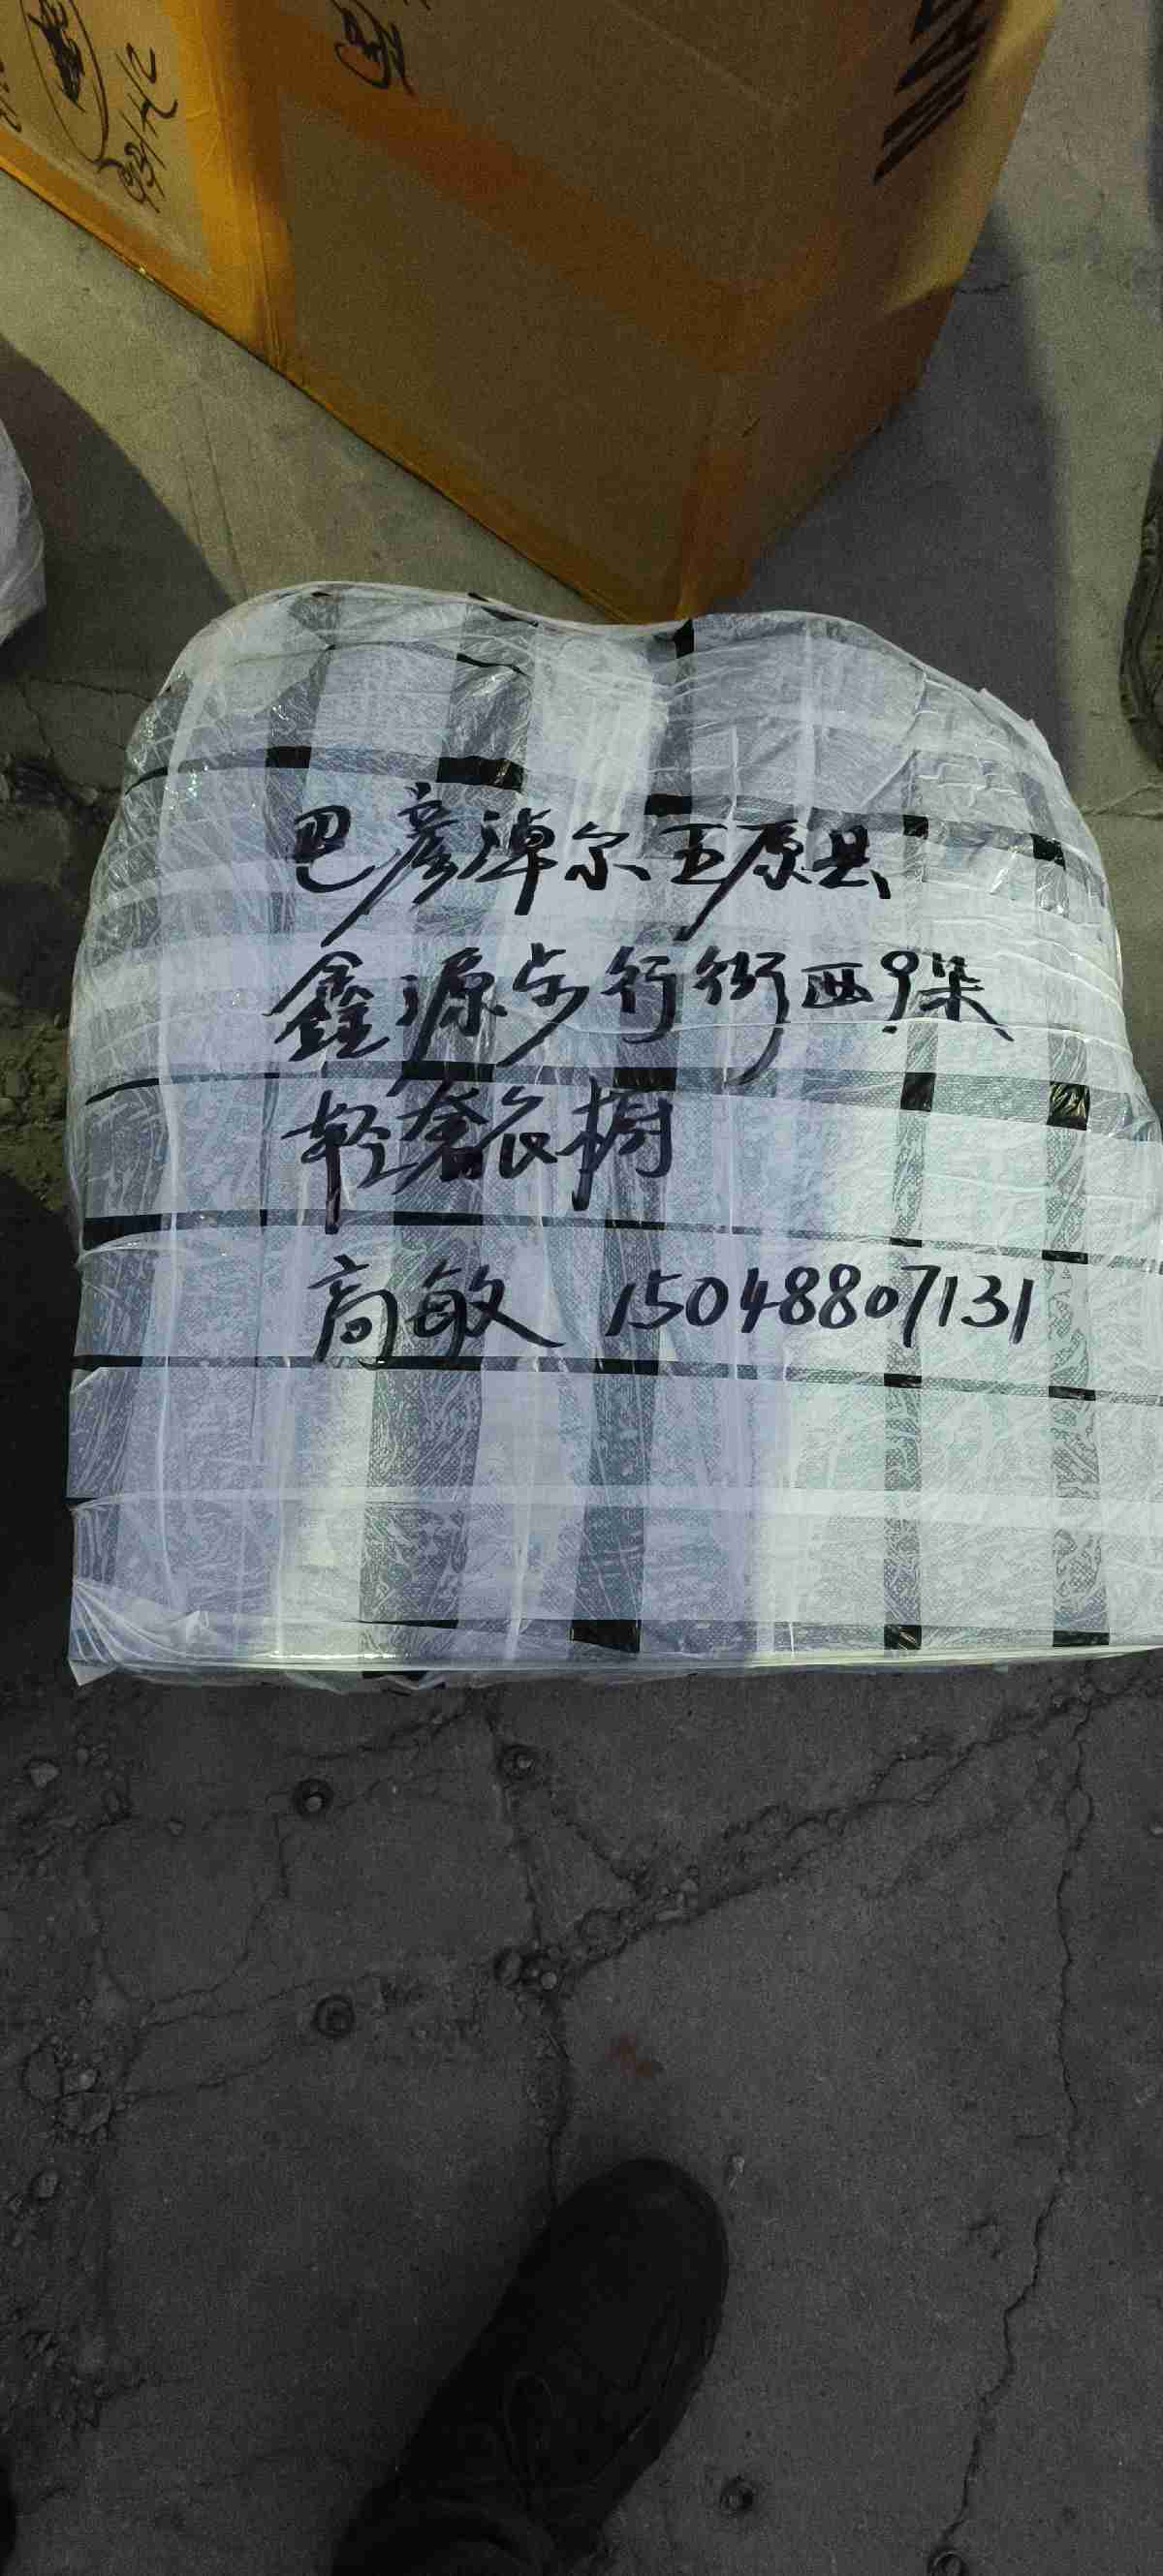 巴彦淖尔五原县
鑫源步行街西9渠
轻奢衣橱
高敏 15048807131